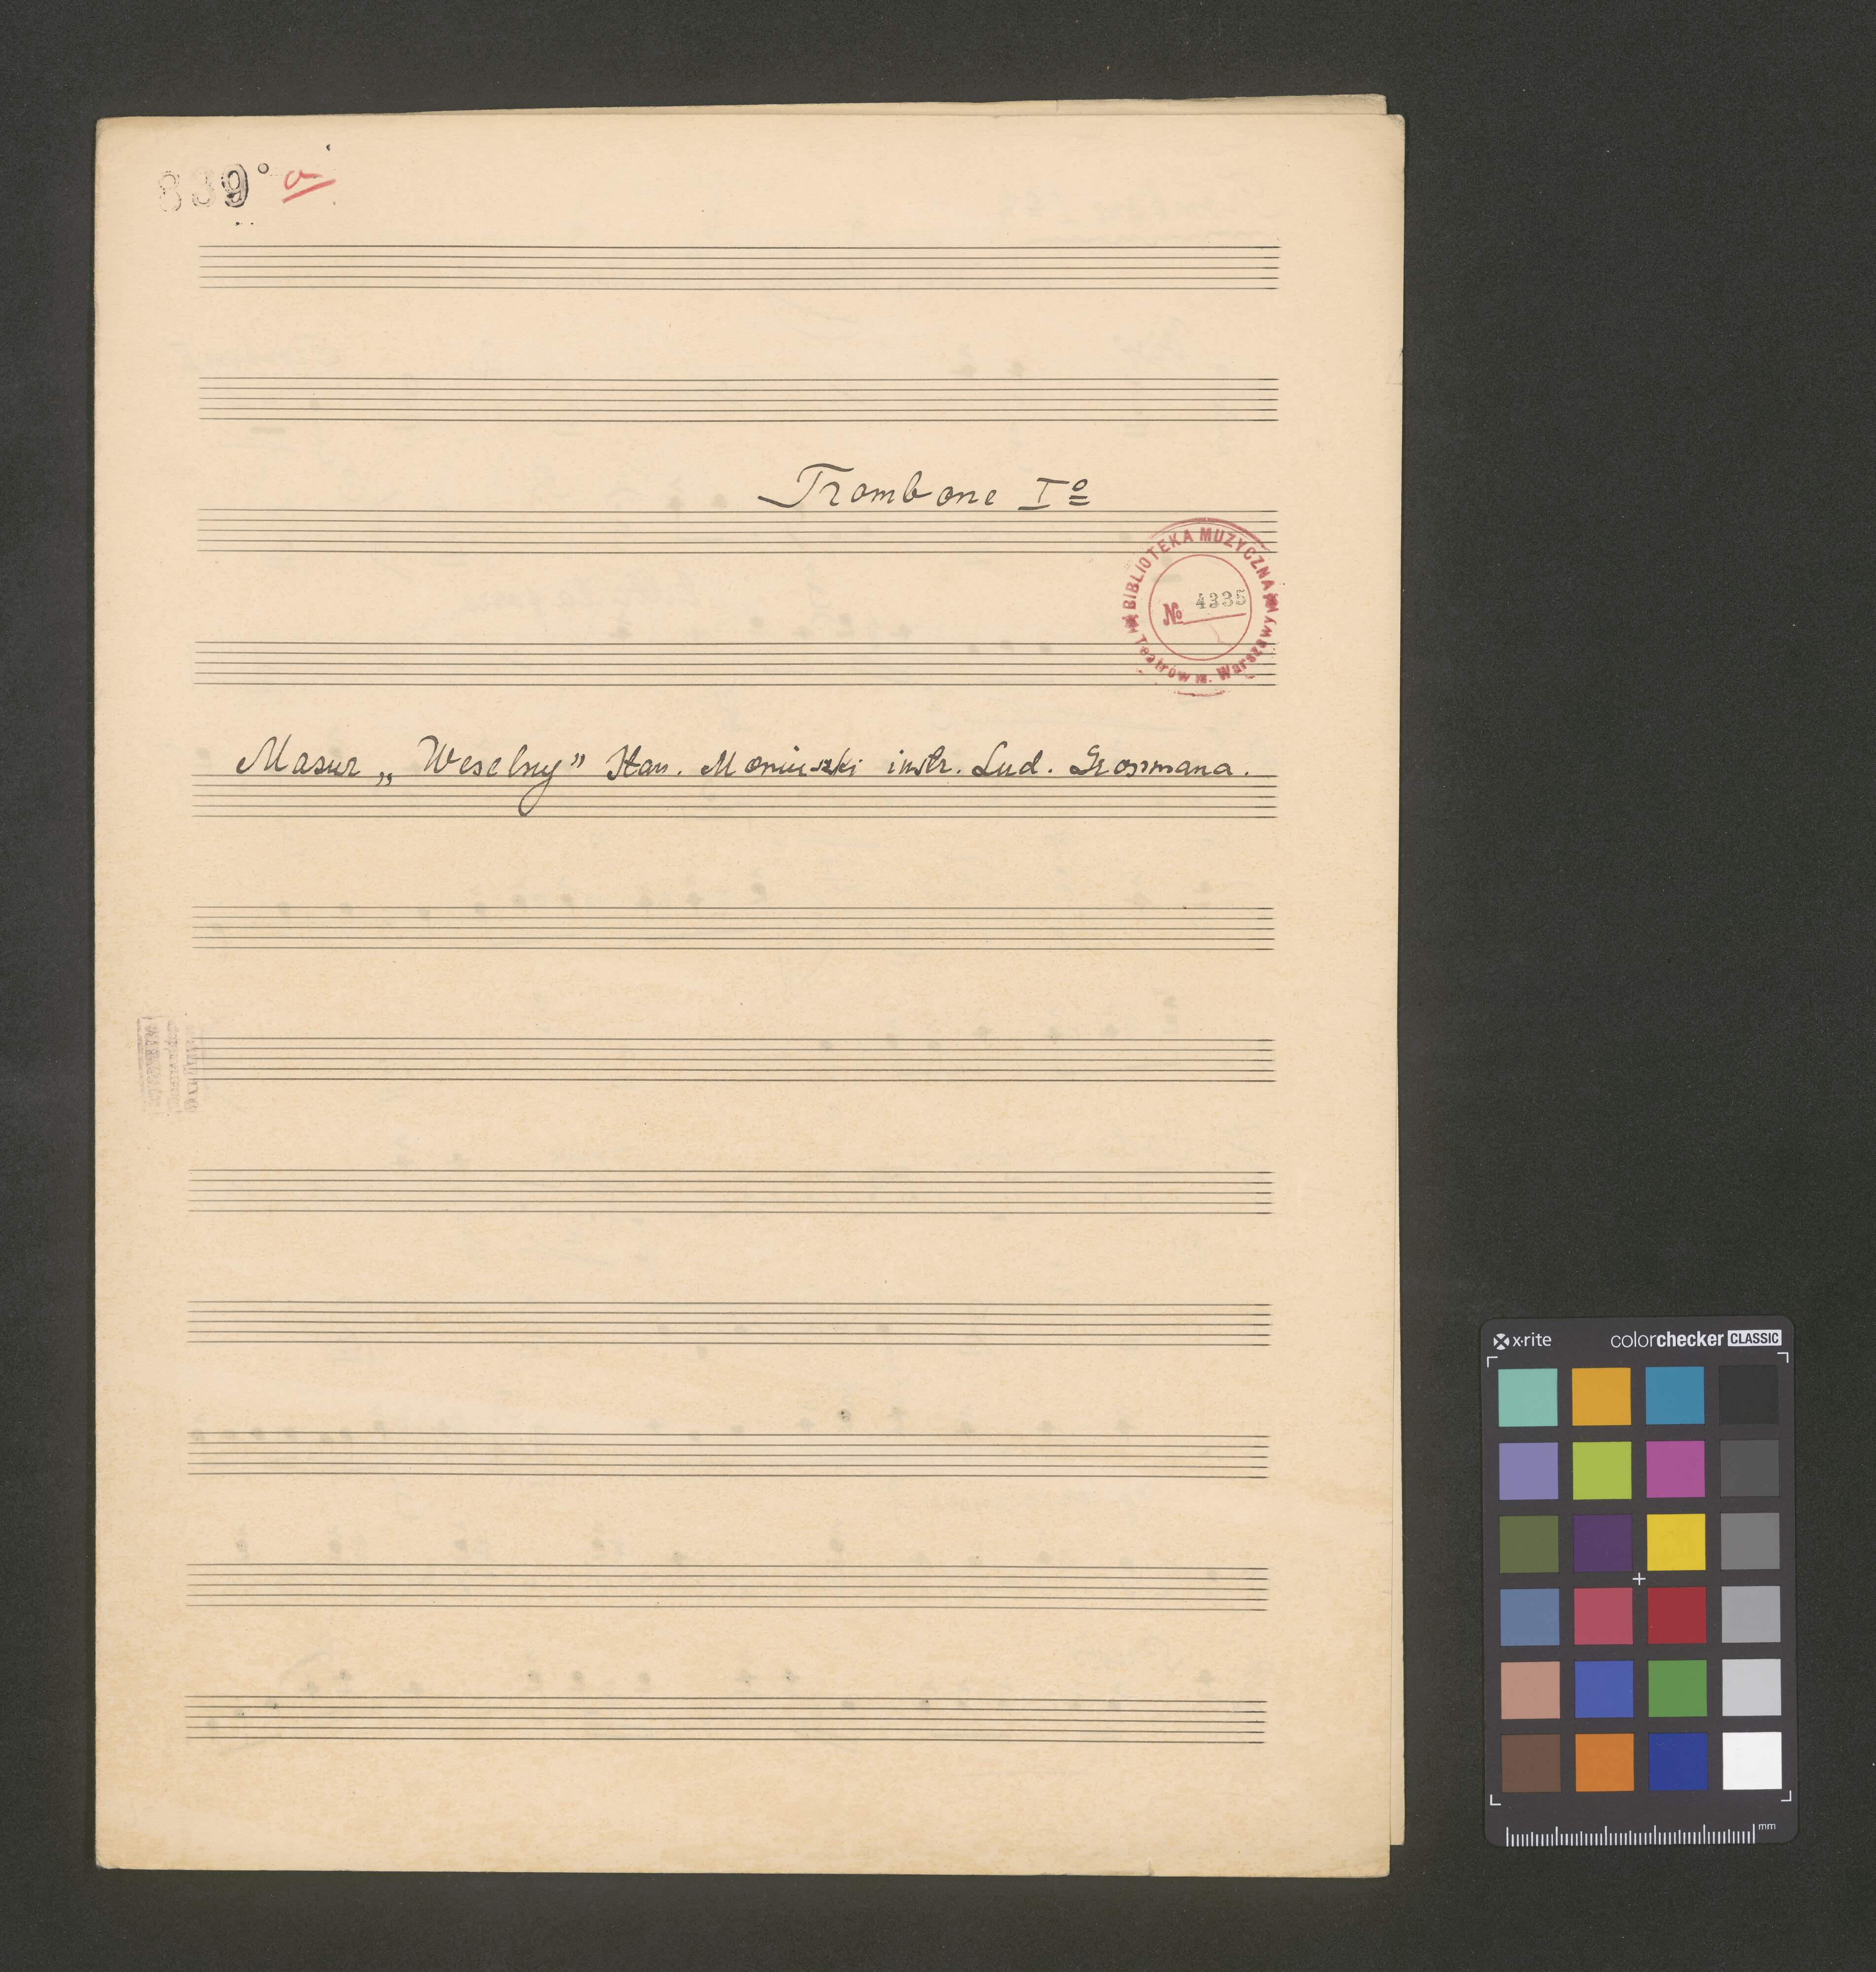 839 a
Trombone Iº
BIBLIOTEKA MUZYCZNA
№ 4335
Teatrów m. Warszawy
Masur „Weselny” Stan. Moniuszki instr. Lud. Grossmana.
x·rite colorchecker CLASSIC
mm